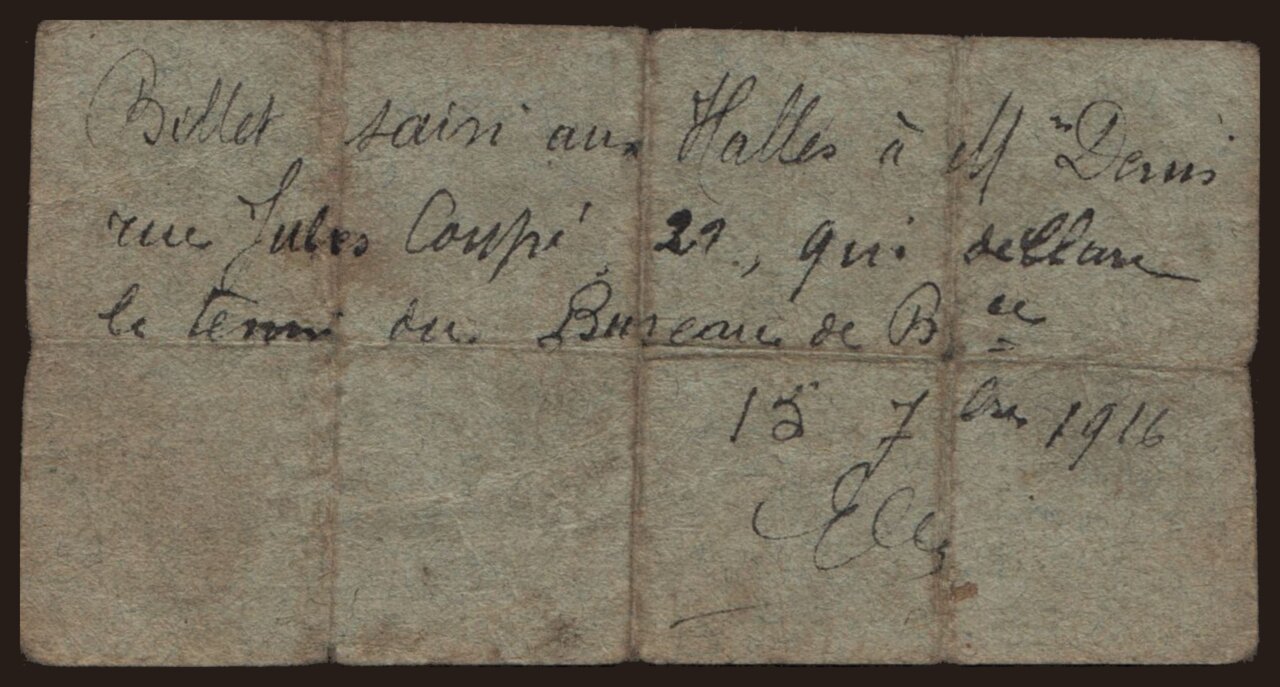 Billet saisi aux Halles à Mm Denis
rue Jules Coupé 21, qui déclare
le tenir du Bureau de Bce
15 7bre 1916